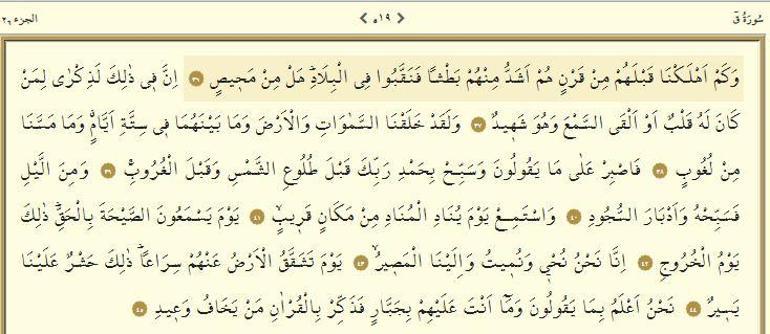 سُورَةُ قٓ ٥١٩ الجزء ٢٦
وَكَمْ اَهْلَكْنَا قَبْلَهُمْ مِنْ قَرْنٍ هُمْ اَشَدُّ مِنْهُمْ بَطْشًا فَنَقَّبُوا فِي الْبِلَادِۜ هَلْ مِنْ مَحٖيصٍ ٣٦ اِنَّ فٖي ذٰلِكَ لَذِكْرٰى لِمَنْ
كَانَ لَهُ قَلْبٌ اَوْ اَلْقَى السَّمْعَ وَهُوَ شَهٖيدٌ ٣٧ وَلَقَدْ خَلَقْنَا السَّمٰوَاتِ وَالْاَرْضَ وَمَا بَيْنَهُمَا فٖي سِتَّةِ اَيَّامٍۗ وَمَا مَسَّنَا
مِنْ لُغُوبٍ ٣٨ فَاصْبِرْ عَلٰى مَا يَقُولُونَ وَسَبِّحْ بِحَمْدِ رَبِّكَ قَبْلَ طُلُوعِ الشَّمْسِ وَقَبْلَ الْغُرُوبِۚ ٣٩ وَمِنَ الَّيْلِ
فَسَبِّحْهُ وَاَدْبَارَ السُّجُودِ ٤٠ وَاسْتَمِعْ يَوْمَ يُنَادِ الْمُنَادِ مِنْ مَكَانٍ قَرٖيبٍۙ ٤١ يَوْمَ يَسْمَعُونَ الصَّيْحَةَ بِالْحَقِّۜ ذٰلِكَ
يَوْمُ الْخُرُوجِ ٤٢ اِنَّا نَحْنُ نُحْيٖ وَنُمٖيتُ وَاِلَيْنَا الْمَصٖيرُۙ ٤٣ يَوْمَ تَشَقَّقُ الْاَرْضُ عَنْهُمْ سِرَاعًاۜ ذٰلِكَ حَشْرٌ عَلَيْنَا
يَسٖيرٌ ٤٤ نَحْنُ اَعْلَمُ بِمَا يَقُولُونَ وَمَٓا اَنْتَ عَلَيْهِمْ بِجَبَّارٍ فَذَكِّرْ بِالْقُرْاٰنِ مَنْ يَخَافُ وَعٖيدِ ٤٥